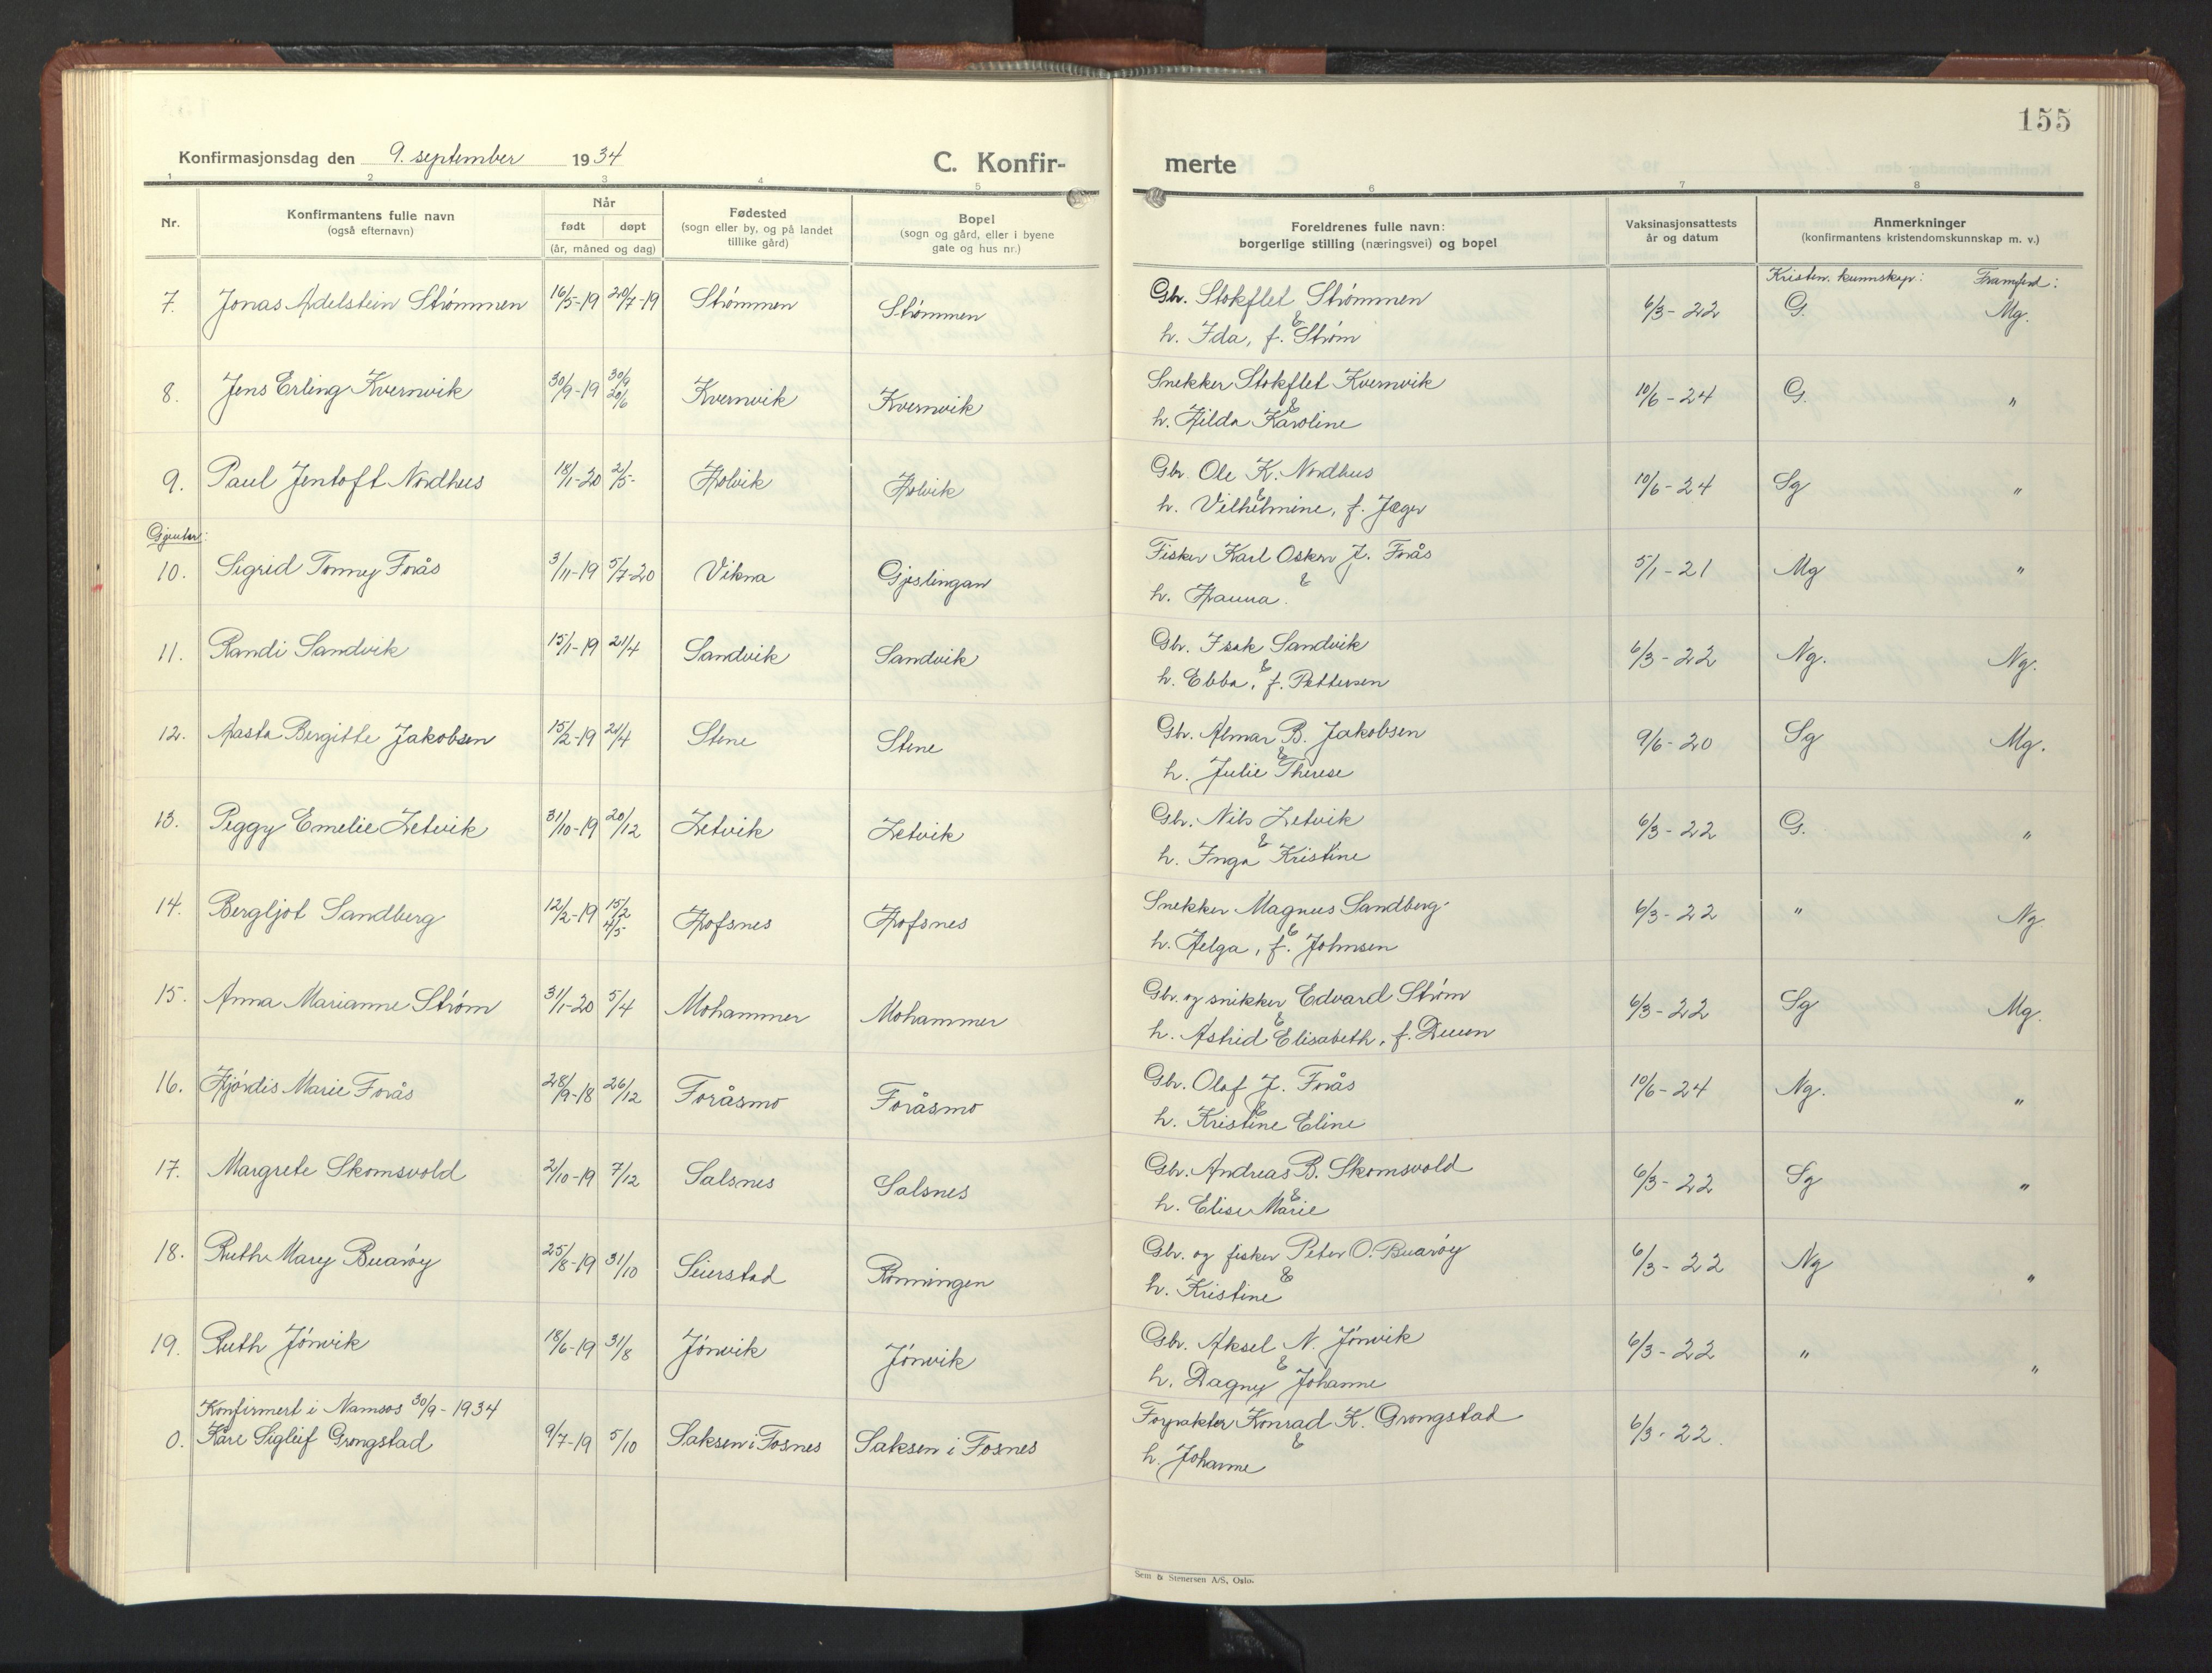 155
Konfirmasjonsdag den 9. september 1934
C. Konfir-
merte
1 2 3 4 5 6 7 8
Nr.
Konfirmantens fulle navn
(også efternavn)
Når
født døpt
(år, måned og dag)
Fødested
(sogn eller by, og på landet
tillike gård)
Bopel
(sogn og gård, eller i byene
gate og hus nr.)
Foreldrenes fulle navn:
borgerlige stilling (næringsvei) og bopel
Vaksinasjonsattests
år og datum
Anmerkninger
(konfirmantens kristendomskunnskap m. v.)
Kristen. kunnskap: Framferd:
7. Jonas Adelstein Strømmen 16/5-19 20/7-19 Strømmen Strømmen Gbr. Stokflet Strømmen 6/3-22 G. Mg.
& h. Ida, f. Strøm
8. Jens Erling Kvernvik 30/9-19 30/9 20/6 Kvernvik Kvernvik Snekker Stokflet Kvernvik 10/6-24 G. "
& h. Hilda Karoline
9. Paul Jentoft Nordhus 18/1-20 2/5- Holvik Holvik Gbr Ole K. Nordhus 10/6-24 Sg "
& h. Vilhelmine, f. Jæger
Gjenter:
10. Sigrid Tonny Forås 3/11-19 5/7-20 Vikna Gjeslingan Fisker Karl Oskar J. Forås 5/1-21 Mg "
& h. Hanna.
11. Randi Sandvik 15/1-19 21/4 Sandvik Sandvik Gbr. Isak Sandvik 6/3-22 Ng. Ng.
& h. Ebba, f. Pettersen
12. Aasta Bergitte Jakobsen 15/2-19 21/4 Stene Stene Gbr. Almar B. Jakobsen 9/6-20 Sg Mg.
& h. Julie Therese
13. Peggy Emelie Zetvik 31/10-19 20/12 Zetvik Zetvik Gbr. Nils Zetvik 6/3-22 G. "
& h. Inga Kristine
14. Bergljot Sandberg 12/2-19 15/2 4/5- Hofsnes Hofsnes Snekker Magnus Sandberg 6/3-22 " Ng
& h. Helga, f. Johnsen
15. Anna Marianne Strøm 31/1-20 5/4 Mohammer Mohammer Gbr. og snikker Edvard Strøm 6/3-22 Sg Mg.
& h. Astrid Elisabeth, f. Duun
16. Hjørdis Marie Forås 28/9-18 26/12 Foråsmo Foråsmo Gbr. Olaf J. Forås 10/6-24 Ng. "
& h. Kristine Eline
17. Margrete Skomsvold 2/10-19 7/12 Salsnes Salsnes Gbr. Andreas B. Skomsvold 6/3-22 Sg "
& h. Elise Marie
18. Ruth Mary Buarøy 25/8-19 31/10 Seierstad Rønningen Gbr. og fisker Peter O. Buarøy 6/3-22 Ng "
& h. Kristine
19. Ruth Jónvik 18/6-19 31/8 Jónvik Jónvik Gbr. Aksel N. Jónvik 6/3-22 " "
& h. Dagny Johanne
Konfirmert i Namsos 30/9-1934
0. Kåre Sigleif Grongstad 9/7-19 5/10 Saksen i Fosnes Saksen i Fosnes Forpakter Konrad K. Grongstad 6/3-22.
& h. Johanne
Sem & Stenersen A/S, Oslo.